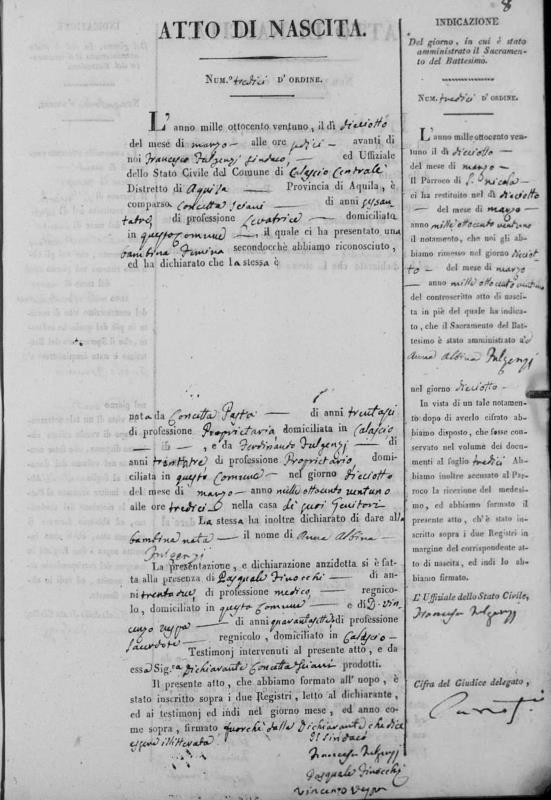 8
ATTO DI NASCITA.
NUM.° tredici D'ORDINE.
L'anno mille ottocento ventuno, il dì dieciotto
del mese di marzo alle ore sedici avanti di
noi Francesco Fulgenzj Sindaco, ed Uffiziale
dello Stato Civile del Comune di Calascio Centrale
Distretto di Aquila Provincia di Aquila, è
comparso Concetta Sciani di anni sessan
tatre, di professione Levatrice domiciliata
in questo Comune il quale ci ha presentato una
bambina Femina secondocchè abbiamo riconosciuto,
ed ha dichiarato che la stessa è
nata da Concetta Pasta di anni trentasei
di professione Proprietaria domiciliata in Calascio
e da Ferdinando Fulgenzj di
anni trentatre di professione Proprietario domi-
ciliata in questo Comune nel giorno dieciotto
del mese di marzo anno mille ottocento ventuno
alle ore tredici nella casa di suoi Genitori
La stessa ha inoltre dichiarato di dare alla
bambina nata il nome di Anna Albina
Fulgenzj
La presentazione, e dichiarazione anzidetta si è fat-
ta alla presenza di Pasquale Finocchi di an-
ni trentadue, di professione medico, regnico-
lo, domiciliato in questo Comune e di D. Vin
cenzo Vespa di anni quarantasette di professione
Sacerdote regnicolo, domiciliato in Calascio
Testimonj intervenuti al presente atto, e da
essa Sig.ra Dichiarante Concetta Sciani prodotti.
Il presente atto, che abbiamo formato all'uopo, è
stato inscritto sopra i due Registri, letto al dichiarante,
ed ai testimonj ed indi nel giorno mese, ed anno co-
me sopra, firmato fuorchè dalla Dichiarante che dice
essere illitterata
Il Sindaco
Francesco Fulgenzj
Pasquale Finocchi
Vincenzo Vespa
INDICAZIONE
Del giorno, in cui è stato
amministrato il Sacramen-
to del Battesimo.
NUM. tredici D'ORDINE.
L'anno mille ottocento ven-
tuno il dì dieciotto
del mese di marzo
Il Parroco di S. Nicola
ci ha restituito nel dì dieciotto
del mese di marzo
anno mille ottocento ventuno
il notamento, che noi gli ab-
biamo rimesso nel giorno dieciot
to del mese di marzo
anno mille ottocento ventuno
del controscritto atto di nasci-
ta in piè del quale ha indica-
to, che il Sacramento del Bat-
tesimo è stato amministrato ad
Anna Albina Fulgenzj
nel giorno dieciotto
In vista di un tale notamen-
to dopo di averlo cifrato ab-
biamo disposto, che fosse con-
servato nel volume dei docu-
menti al foglio tredici Ab-
biamo inoltre accusato al Par-
roco la ricezione del medesi-
mo, ed abbiamo formato il
presente atto, ch'è stato in-
scritto sopra i due Registri in
margine del corrispondente at-
to di nascita, ed indi lo ab-
biamo firmato.
L'Uffiziale dello Stato Civile,
Francesco Fulgenzj
Cifra del Giudice delegato,